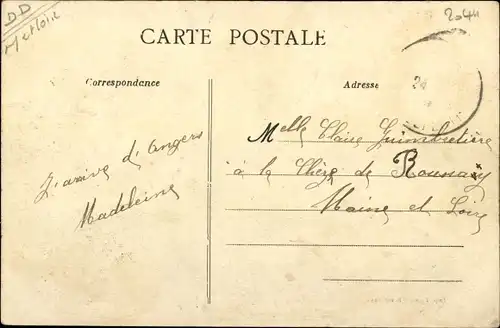 DD
2044
CARTE POSTALE
Correspondance
Adresse
J'arrive d'Angers
Madeleine
Melle Claire Guimbretière
à la Chèze de Roussay
Maine et Loire